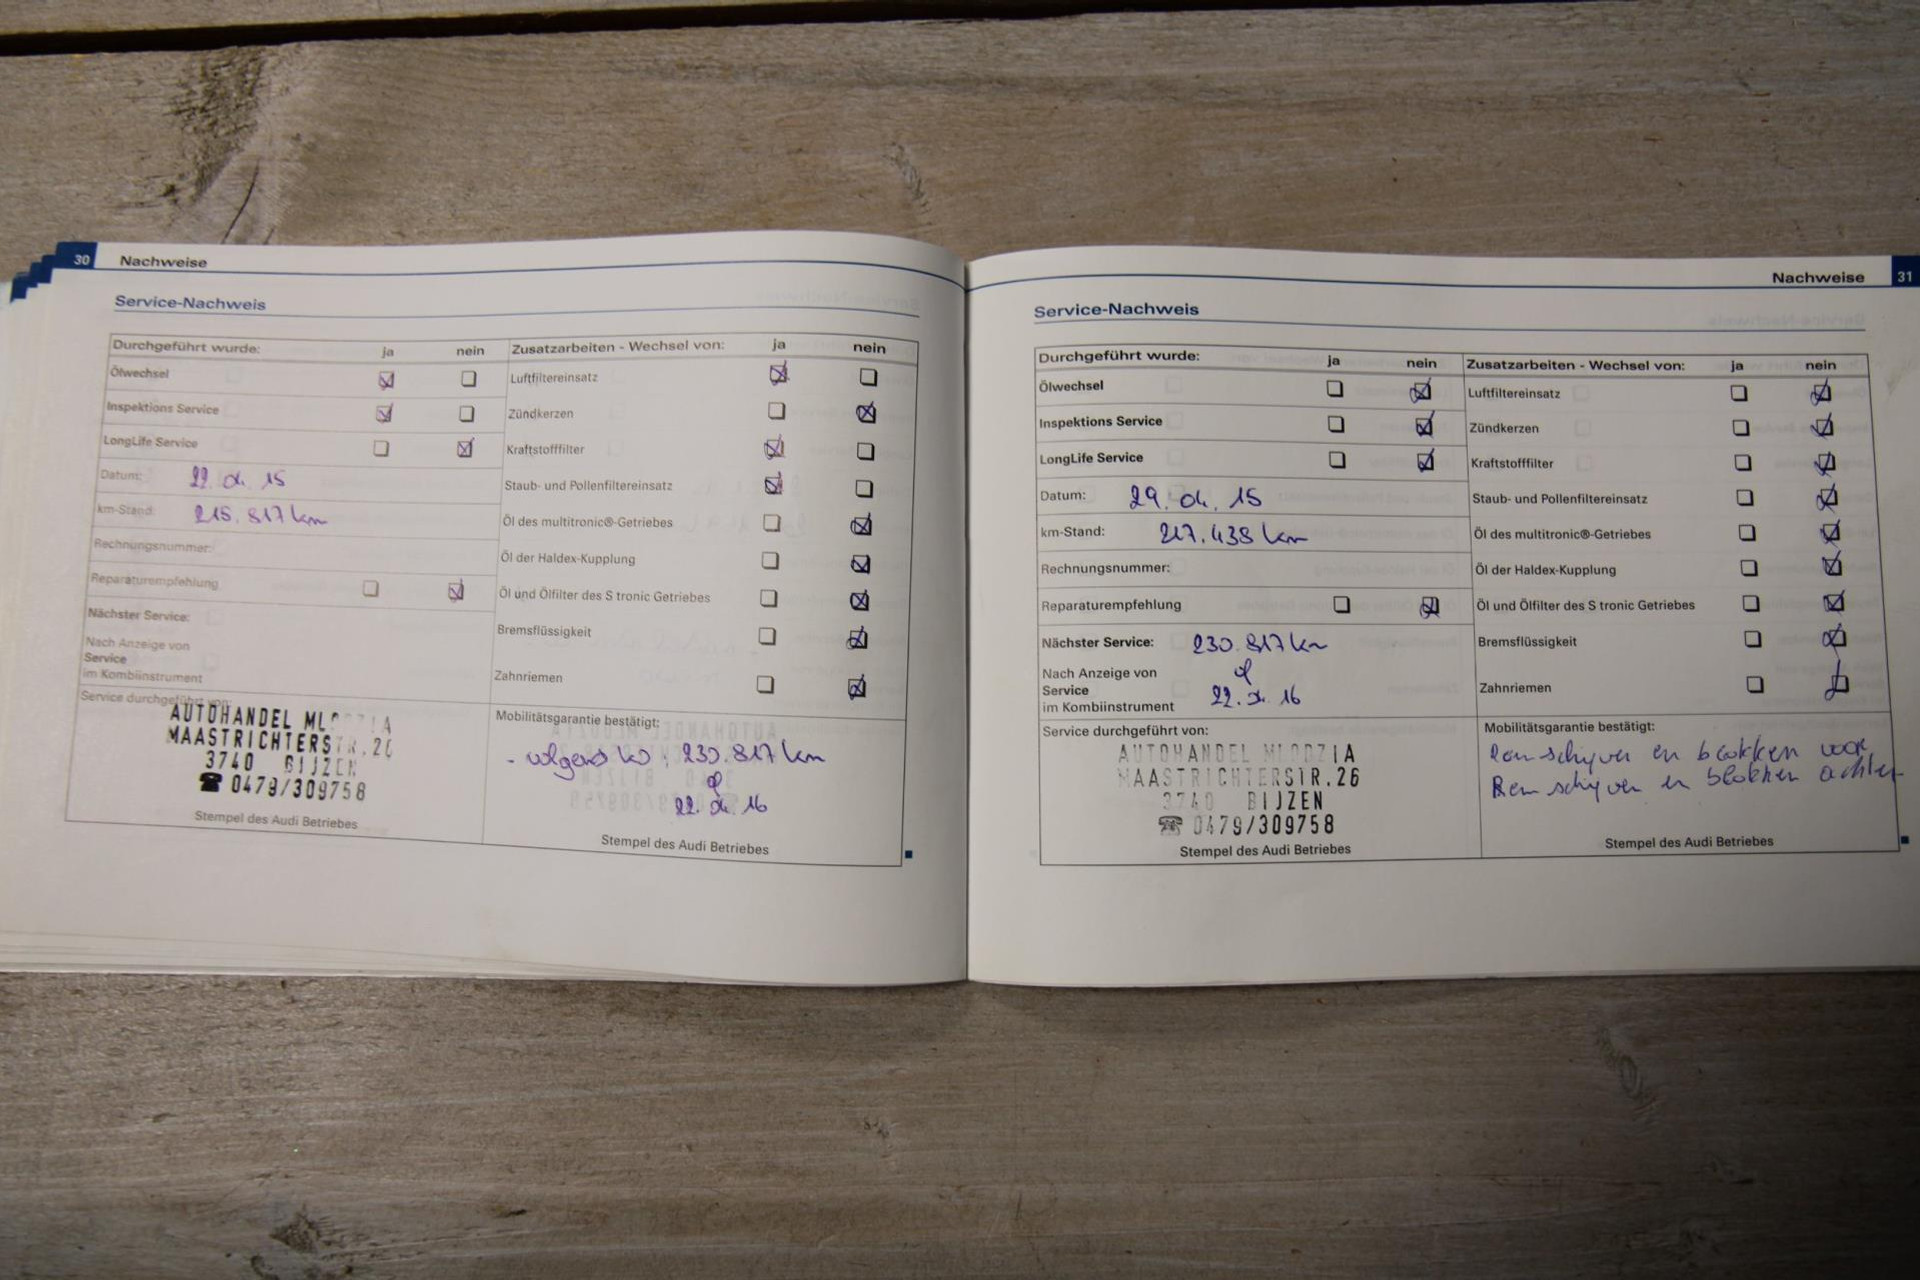 30 Nachweise
Service-Nachweis
Durchgeführt wurde: ja nein
Ölwechsel
Inspektions Service
LongLife Service
Datum: 22. 04. 15
km-Stand: 215.817 km
Rechnungsnummer:
Reparaturempfehlung
Nächster Service:
Nach Anzeige von
Service
im Kombiinstrument
Service durchgeführt von:
AUTOHANDEL MLODZIA
MAASTRICHTERSTR.26
3740 BIJZEN
☎ 0479/309758
Stempel des Audi Betriebes
Zusatzarbeiten - Wechsel von: ja nein
Luftfiltereinsatz
Zündkerzen
Kraftstofffilter
Staub- und Pollenfiltereinsatz
Öl des multitronic®-Getriebes
Öl der Haldex-Kupplung
Öl und Ölfilter des S tronic Getriebes
Bremsflüssigkeit
Zahnriemen
Mobilitätsgarantie bestätigt:
- volgens : 230.817 km
of
22. 04. 16
Stempel des Audi Betriebes
Nachweise 31
Service-Nachweis
Durchgeführt wurde: ja nein
Ölwechsel
Inspektions Service
LongLife Service
Datum: 29. 04. 15
km-Stand: 217.438 km
Rechnungsnummer:
Reparaturempfehlung
Nächster Service: 230.817 km
Nach Anzeige von of
Service 22. 04. 16
im Kombiinstrument
Service durchgeführt von:
AUTOHANDEL MLODZIA
MAASTRICHTERSTR.26
3740 BIJZEN
☎ 0479/309758
Stempel des Audi Betriebes
Zusatzarbeiten - Wechsel von: ja nein
Luftfiltereinsatz
Zündkerzen
Kraftstofffilter
Staub- und Pollenfiltereinsatz
Öl des multitronic®-Getriebes
Öl der Haldex-Kupplung
Öl und Ölfilter des S tronic Getriebes
Bremsflüssigkeit
Zahnriemen
Mobilitätsgarantie bestätigt:
Remschijven en blokken voor
Remschijven en blokken achter
Stempel des Audi Betriebes